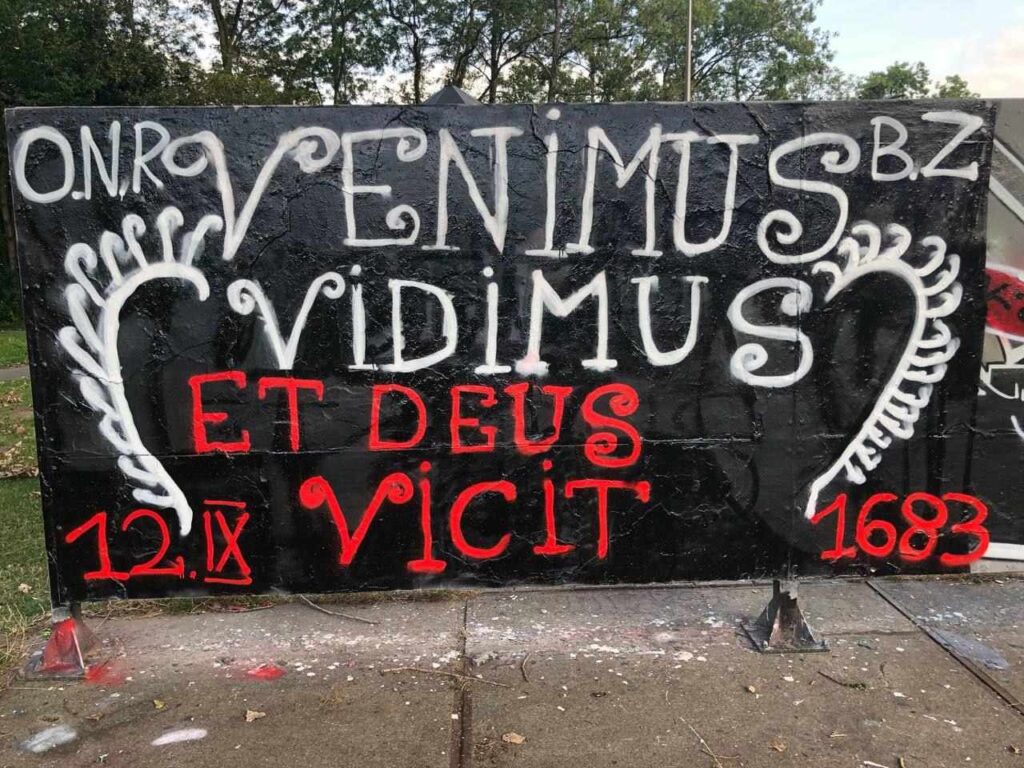 O.N.R VENIMUS B.Z
VIDIMUS
ET DEUS
VICIT
12.IX 1683